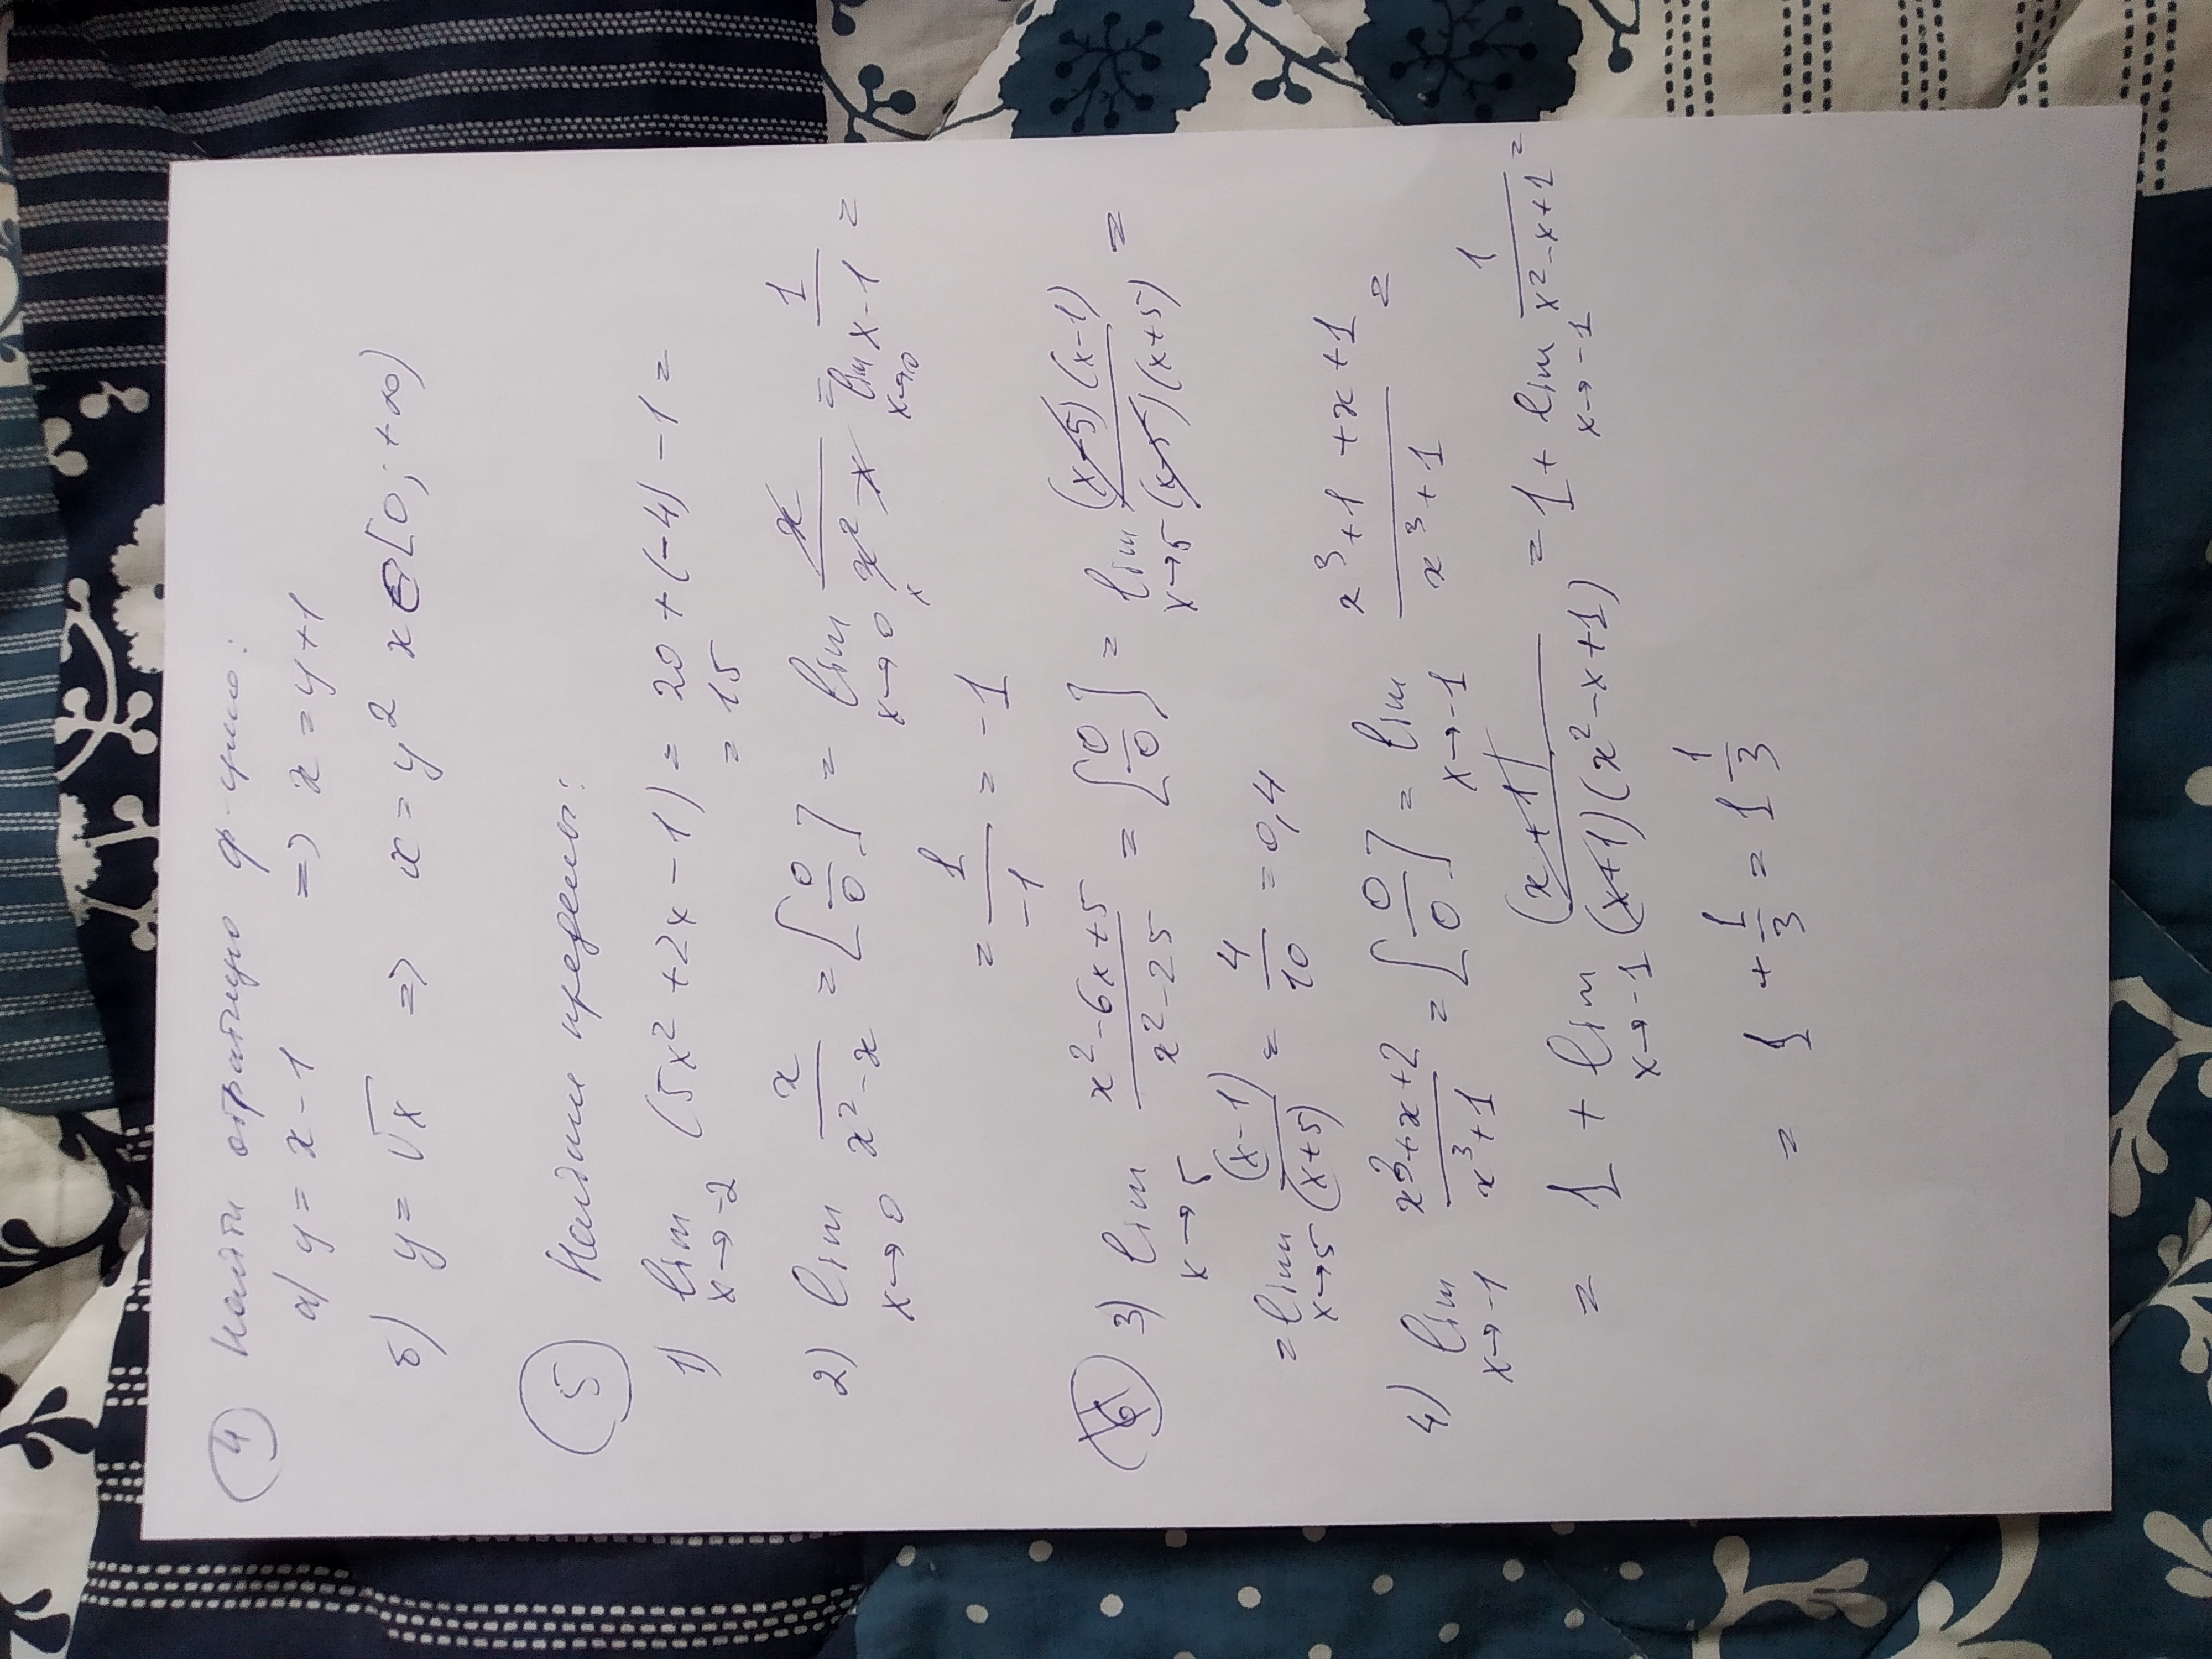 4 Найти обратную ф-цию:
а) y = x - 1 => x = y + 1
б) y = √x => x = y² x ∈ [0; +∞)
5 Найдите пределы:
1) lim x→-2 (5x² + 2x - 1) = 20 + (-4) - 1 =
= 15
2) lim x→0 x/(x² - x) = [0/0] = lim x→0 x/(x² - x) = lim x→0 1/(x - 1) =
= 1/-1 = -1
3) lim x→5 (x² - 6x + 5)/(x² - 25) = [0/0] = lim x→5 (x-5)(x-1)/(x-5)(x+5) =
= lim x→5 (x-1)/(x+5) = 4/10 = 0,4
4) lim x→-1 (x³ + x + 2)/(x³ + 1) = [0/0] = lim x→-1 (x³ + 1 + x + 1)/(x³ + 1) =
= 1 + lim x→-1 (x+1)/(x+1)(x² - x + 1) = 1 + lim x→-1 1/(x² - x + 1) =
= 1 + 1/3 = 1 1/3